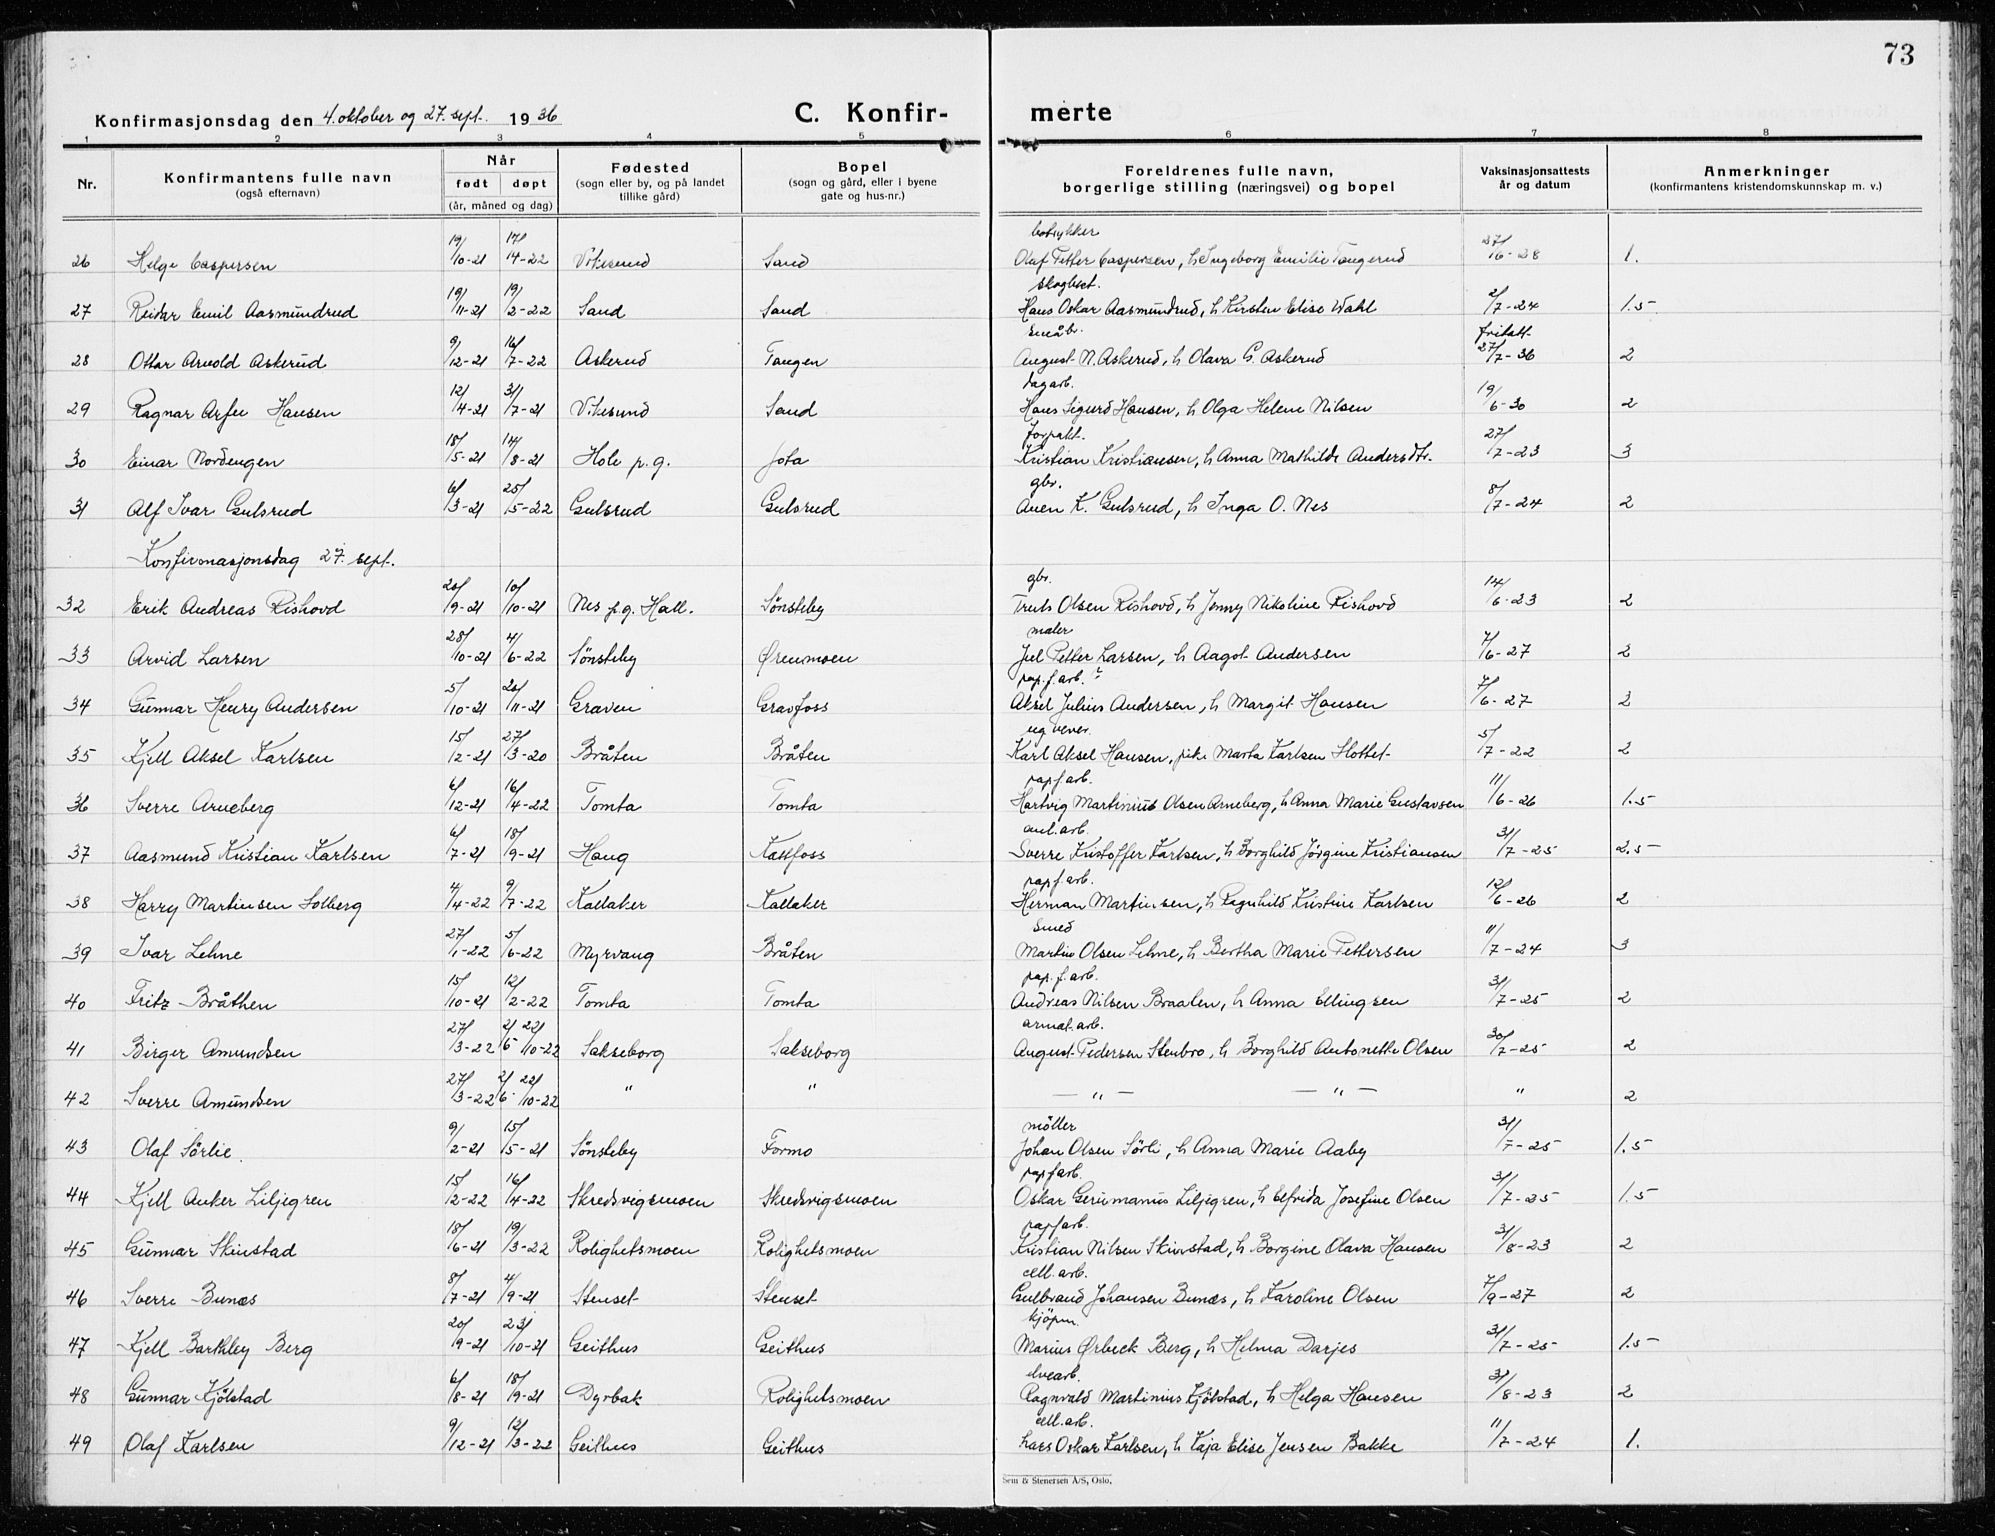 73
Konfirmasjonsdag den 4. oktober og 27. sept. 1936 C. Konfir- merte
1 2 3 4 5 6 7 8
Nr. Konfirmantens fulle navn (også efternavn) Når født døpt (år, måned og dag) Fødested (sogn eller by, og på landet tillike gård) Bopel (sogn og gård, eller i byene gate og hus-nr.) Foreldrenes fulle navn, borgerlige stilling (næringsvei) og bopel Vaksinasjonsattests år og datum Anmerkninger (konfirmantens kristendomskunnskap m. v.)
26 Helge Caspersen 19/10-21 17/14-22 Vikesund Sand Olaf Petter Caspersen, h Ingeborg Emilie Tangerud 27/6-28 1.
skogbest.
27 Reidar Emil Aasmundrud 19/11-21 19/2-22 Sand Sand Hans Oskar Aasmundrud, h Kirsten Elise Wahl 2/7-24 1.5
småbr. fritatt
28 Ottar Arnold Askerud 9/12-21 16/7-22 Askerud Tangen August N. Askerud, h Olava G. Askerud 27/7-36 2
dagarb.
29 Ragnar Arfer Hansen 12/4-21 31/7-21 Vikesund Sand Hans Sigurd Hansen, h Olga Helene Nilsen 19/6-30 2
forpakt.
30 Einar Nordengen 18/5-21 14/8-21 Hole p.g. Jota Kristian Kristiansen, h Anna Mathilde Andersdtr. 27/7-23 3
gbr.
31 Alf Ivar Gulsrud 6/3-21 25/5-22 Gulsrud Gulsrud Auen K. Gulsrud, h Inga O. Nes 8/7-24 2
Konfirmasjonsdag 27. sept.
gbr.
32 Erik Andreas Rishovd 20/9-21 10/10-21 Nes p.g. Hall. Sønsteby Truls Olsen Rishovd, h Jenny Nikoline Rishovd 14/6-23 2
maler
33 Arvid Larsen 28/10-21 4/6-22 Sønsteby Ørenmoen Juel Petter Larsen, h Aagot Andersen 7/6-27 2
pap.f.arb.
34 Gunnar Henry Andersen 5/10-21 20/11-21 Graven Gravfoss Aksel Julius Andersen, h Margit Hansen 7/6-27 2
ug vever.
35 Kjell Aksel Karlsen 15/12-21 27/3-20 Bråten Bråten Karl Aksel Hansen, pike Marta Karlsen Slottet 5/7-22 2
papf.arb.
36 Sverre Arneberg 6/12-21 16/4-22 Tomta Tomta Hartvig Martinius Olsen Arneberg, h Anna Marie Gustavsen 11/6-26 1.5
anl.arb.
37 Aasmund Kristian Karlsen 6/7-21 18/9-21 Haug Kattfoss Sverre Kristoffer Karlsen, h Borghild Jörgine Kristiansen 31/7-25 2.5
papf.arb.
38 Harry Martinsen Solberg 4/4-22 9/7-22 Kallaker Kallaker Herman Martinsen, h Ragnhild Kristine Karlsen 12/6-26 2
smed
39 Ivar Lehne 27/1-22 5/6-22 Myrvang Bråten Martin Olsen Lehne, h Bertha Marie Pettersen 11/7-24 3
pap.f.arb.
40 Fritz Bråthen 15/10-21 12/2-22 Tomta Tomta Andreas Nilsen Braaten, h Anna Ellingsen 31/7-25 2
armat.arb.
41 Birger Amundsen 27/3-22 2/5 22/10-22 Sakseborg Sakseborg August Pedersen Stenbro, h Borghild Antonette Olsen 30/7-25 2
42 Sverre Amundsen 27/3-22 2/6 22/10-22 " " — " — — " — " 2
möller
43 Olaf Sörlie. 9/2-21 15/5-21 Sønsteby Formo Johan Olsen Sörli, h Anna Marie Aaby 31/7-25 1.5
papfarb.
44 Kjell Anker Liljegren 15/12-22 16/4-22 Skredsvigsmoen Skredsvigsmoen Oskar Gerimanus Liljegren, h Elfrida Josefine Olsen 31/7-25 1.5
papfarb.
45 Gunnar Skinstad 18/6-21 19/3-22 Rolighetsmoen Rolighetsmoen Kristian Nilsen Skinstad, h Borgine Olava Hansen 31/8-23 2
cell.arb.
46 Sverre Bunæs 8/7-21 4/9-21 Stenset Stenset Gulbrand Johansen Bunæs, h Karoline Olsen 7/9-27 2
kjöpm.
47 Kjell Barthley Berg 20/9-21 23/10-21 Geithus Geithus Marius Ørbeck Berg, h Helma Darjes 31/7-25 1.5
elvearb.
48 Gunnar Kjölstad 6/8-21 18/9-21 Dyrbak Rolighetsmoen Ragnvald Martinius Kjölstad, h Helga Hansen 31/8-23 2
cell.arb.
49 Olaf Karlsen 9/12-21 12/3-22 Geithus Geithus Lars Oskar Karlsen, h Kaja Elise Jensen Bakke 11/7-24 1.
Sem & Stenersen A/S, Oslo.